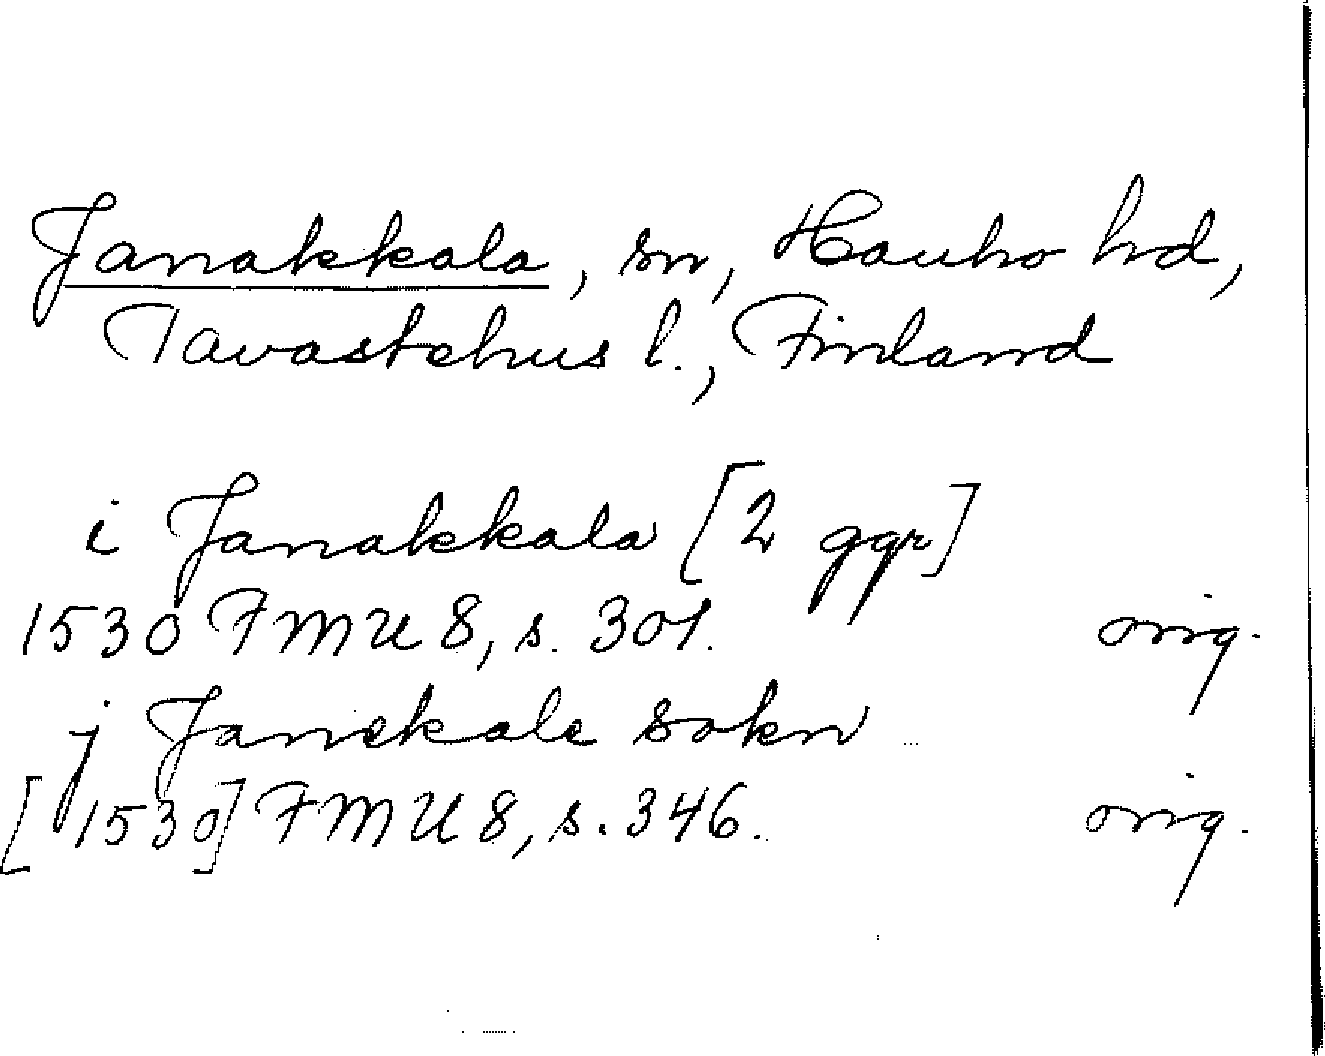 Janakkala, sn, Hauho hd,
Tavastehus l., Finland
i Janakkala [2 ggr]
1530 FMU 8, s. 301. orig.
j Janekale sokn
[1530] FMU 8, s. 346. orig.